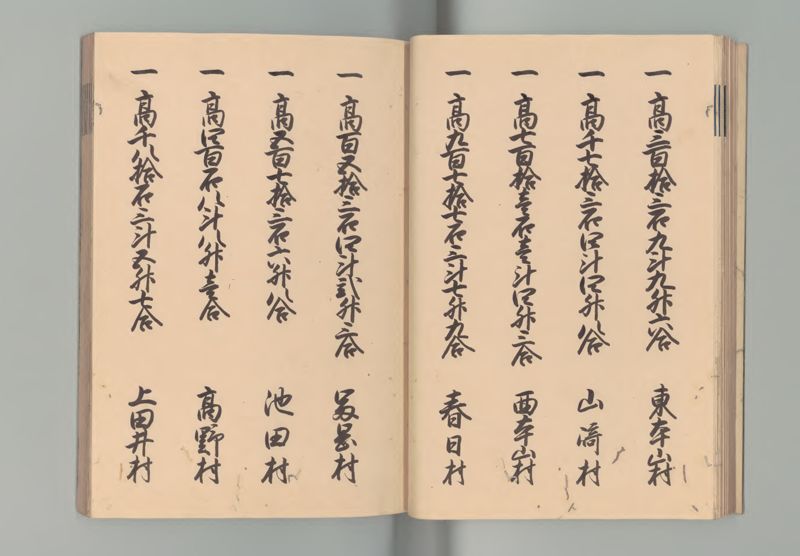 一 高三百拾三石九斗九升六合 東本山村
一 高千七拾三石四斗四升八合 山崎村
一 高七百拾壱石壱斗四升三合 西本山村
一 高九百七拾七石三斗七升九合 春日村
一 高百五拾三石四斗弐升三合 村
一 高五百七拾三石六升八合 池田村
一 高四百石八斗八升壱合 高野村
一 高千八拾石三斗五升七合 上田井村